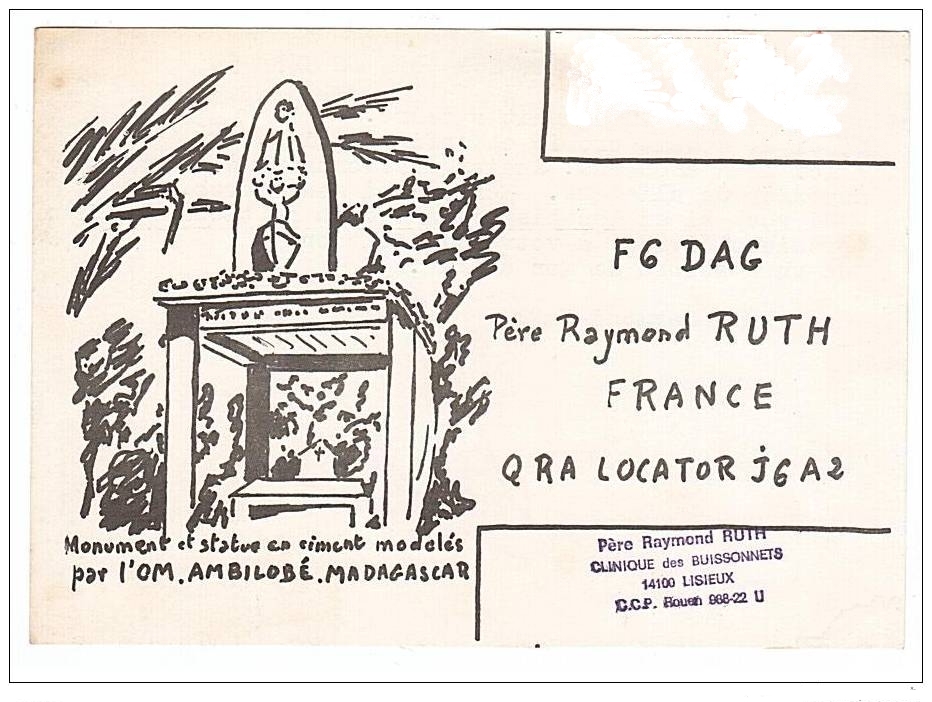 F6 DAG
Père Raymond RUTH
FRANCE
QRA LOCATOR J6A2
Monument et statue en ciment modelés
par l'OM. AMBILOBÉ. MADAGASCAR
Père Raymond RUTH
CLINIQUE des BUISSONNETS
14100 LISIEUX
C.C.P. Rouen 988-22 U